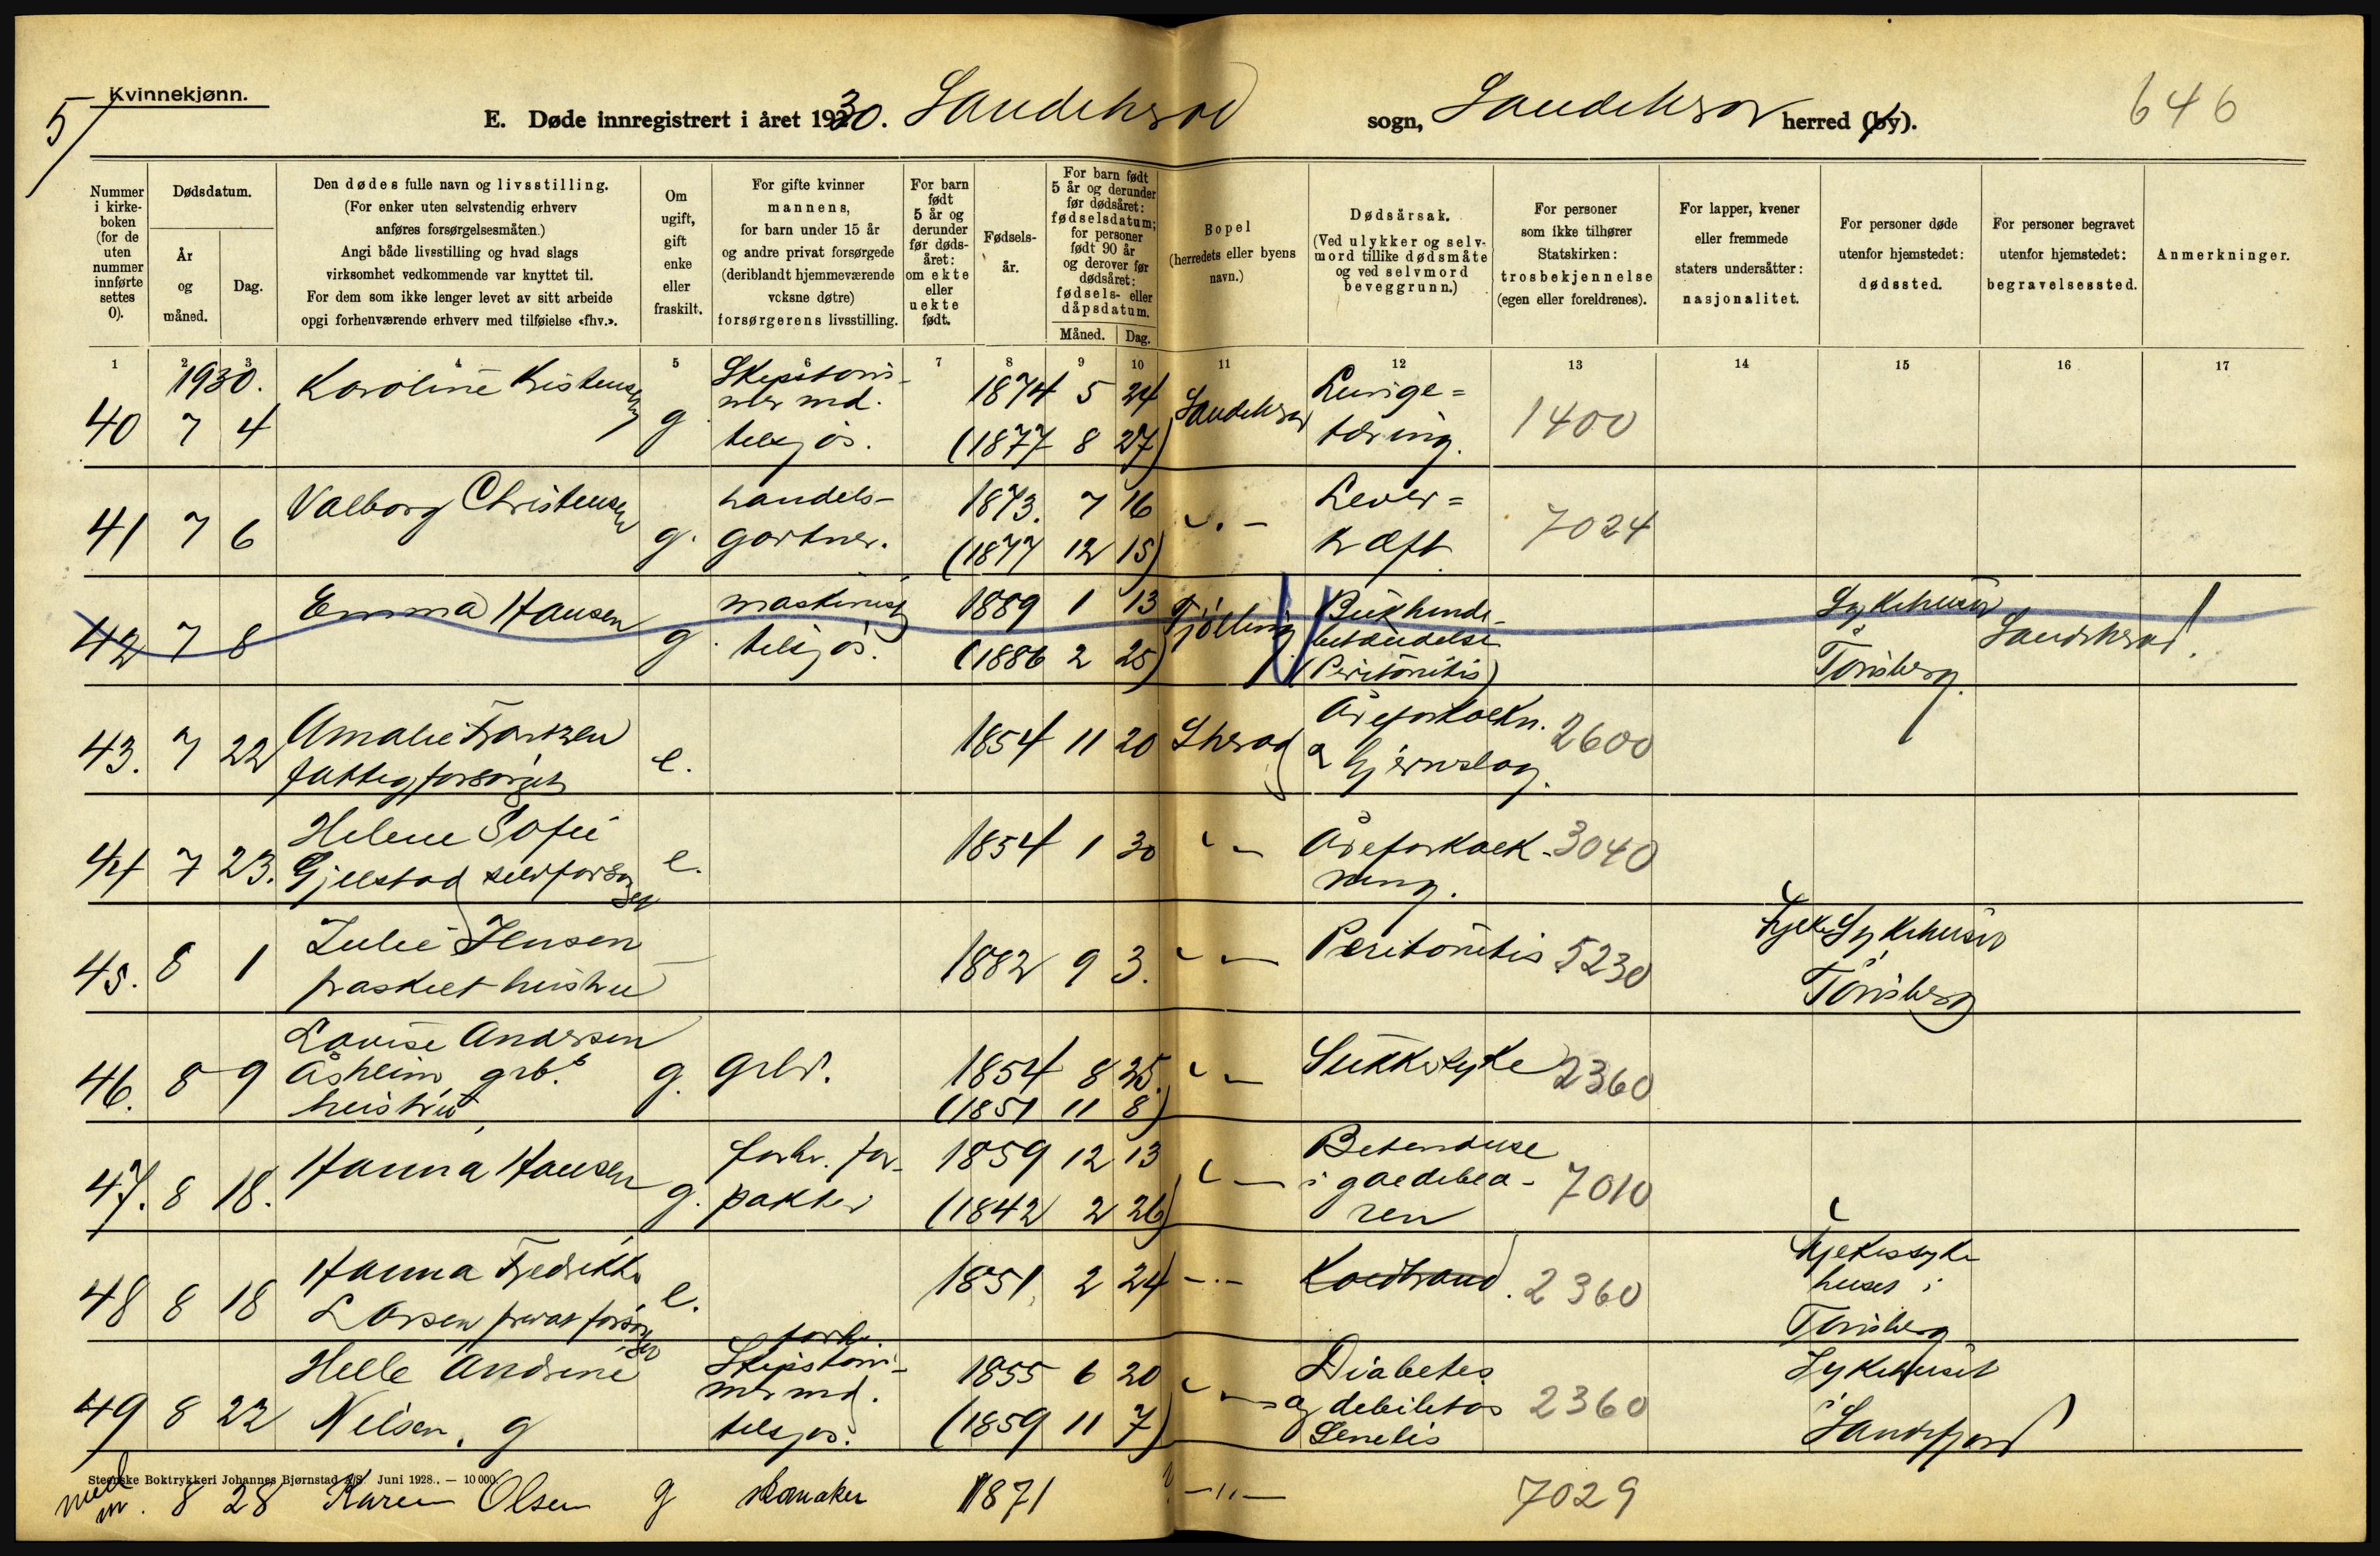 Kvinnekjønn.
5
E. Døde innregistrert i året 1930. Sandeherad sogn, Sandeherad herred (by).
646
Nummer i kirke-boken (for de uten nummer innførte settes 0).
Dødsdatum.
År og måned.
Dag.
Den dødes fulle navn og livsstilling.
(For enker uten selvstendig erhverv
anføres forsørgelsesmåten.)
Angi både livsstilling og hvad slags
virksomhet vedkommende var knyttet til.
For dem som ikke lenger levet av sitt arbeide
opgi forhenværende erhverv med tilføielse «fhv.».
Om ugift, gift enke eller fraskilt.
For gifte kvinner
mannens,
for barn under 15 år
og andre privat forsørgede
(deriblandt hjemmeværende
voksne døtre)
forsørgerens livsstilling.
For barn født 5 år og derunder før døds-året: om ekte eller uekte født.
Fødsels-år.
For barn født 5 år og derunder før dødsåret: fødselsdatum; for personer født 90 år og derover før dødsåret: fødsels- eller dåpsdatum.
Måned. Dag.
Bopel
(herredets eller byens
navn.)
Dødsårsak.
(Ved ulykker og selv-
mord tillike dødsmåte
og ved selvmord
beveggrunn.)
For personer
som ikke tilhører
Statskirken:
trosbekjennelse
(egen eller foreldrenes).
For lapper, kvener
eller fremmede
staters undersåtter:
nasjonalitet.
For personer døde
utenfor hjemstedet:
dødssted.
For personer begravet
utenfor hjemstedet:
begravelsessted.
Anmerkninger.
1 2 3 4 5 6 7 8 9 10 11 12 13 14 15 16 17
1930.
40 7 4 Karoline Kristensen g Skipstøm-
mermd.
tilsjøs. 1874 5 24
(1877 8 27) Sandeherad Lunge=
tæring. 1400
41 7 6 Valborg Christensen g. handels-
gartner. 1873. 7 16
(1877 12 15) -.- Lever=
kræft 7024
42 7 8 Emma Hansen g. maskinist
tilsjøs. 1889 1 13
(1886 2 25) Tjølling Bukhinde-
betændelse
(Peritonitis) Sykehuset
Tønsberg. Sandeherad.
43. 7 22 Amalie Frantzen
fattigforsørget e. 1854 11 20 Sherad Åreforkalkn.
& hjerneslag. 2600
44 7 23. Helene Sofie
Gjelstad selvforsørget e. 1854 1 30 " - Åreforkalk-
ning. 3040
45. 8 1 Julie Jensen
fraskilt hustru - 1882 9 3. " - Peritonitis 5230 Fylkessykehuset
Tønsberg
46. 8 9 Lovise Andersen
Åsheim, grb.s
hustru g. grbr. 1854 8 25.
(1851 11 8) " - Sukkersyke 2360
47. 8 18. Hanna Hansen g. forhv. for-
pakter 1859 12 13
(1842 2 26) " - Betendelse
i galdeblæ-
ren 7010
48 8 18 Hanna Fredrikke
Larsen privat forsørget e. 1851 2 24 -.- Koldbrand. 2360 Fylkessyke
huset i
Tønsberg
49 8 22 Helle Andrine
Nilsen. g forhv.
Skipstøm-
mermd.
tilsjøs. 1855 6 20
(1859 11 7) " - Diabetes
og debilitas
senilis 2360 Sykehuset
i Sandefjord
Steenske Boktrykkeri Johannes Bjørnstad A/S. Juni 1928. — 10 000.
8 28 Karen Olsen g skomaker 1871 -"- 7029